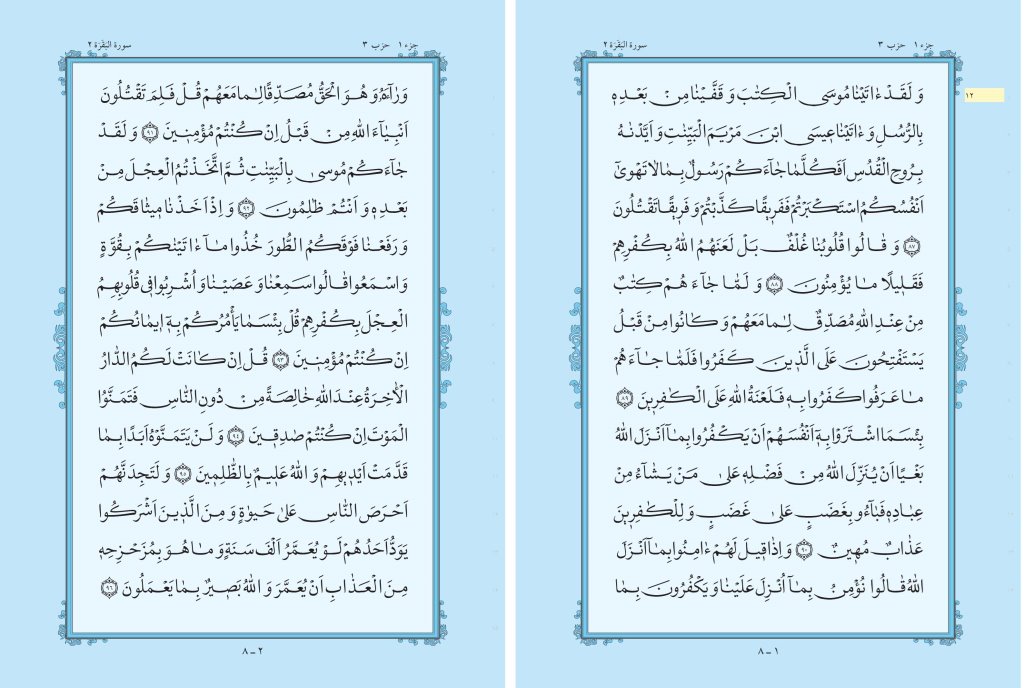 جزء ۱ حزب ۳
سورة البَقَرَة ۲
۱۲
وَ لَقَدْ ءَاتَيْنَا مُوسَى الْكِتٰبَ وَ قَفَّيْنَا مِنْ بَعْدِهِ
بِالرُّسُلِ وَ ءَاتَيْنَا عِيسَى ابْنَ مَرْيَمَ الْبَيِّنٰتِ وَ اَيَّدْنٰهُ
بِرُوحِ الْقُدُسِ اَفَكُلَّمَا جَاۤءَكُمْ رَسُولٌ بِمَا لَا تَهْوىٰٓ
اَنْفُسُكُمُ اسْتَكْبَرْتُمْ فَفَرِيقًا كَذَّبْتُمْ وَ فَرِيقًا تَقْتُلُونَ
﴿۸۷﴾ وَ قَالُوا قُلُوبُنَا غُلْفٌ بَلْ لَعَنَهُمُ اللهُ بِكُفْرِهِمْ
فَقَلِيلًا مَا يُؤْمِنُونَ ﴿۸۸﴾ وَ لَمَّا جَاۤءَ هُمْ كِتٰبٌ
مِنْ عِنْدِ اللهِ مُصَدِّقٌ لِمَا مَعَهُمْ وَ كَانُوا مِنْ قَبْلُ
يَسْتَفْتِحُونَ عَلَى الَّذِينَ كَفَرُوا فَلَمَّا جَاۤءَهُمْ
مَا عَرَفُوا كَفَرُوا بِهِ فَلَعْنَةُ اللهِ عَلَى الْكٰفِرِينَ ﴿۸۹﴾
بِئْسَمَا اشْتَرَوْا بِهِٓ اَنْفُسَهُمْ اَنْ يَكْفُرُوا بِمَاۤ اَنْزَلَ اللهُ
بَغْيًا اَنْ يُنَزِّلَ اللهُ مِنْ فَضْلِهِ عَلىٰ مَنْ يَشَاۤءُ مِنْ
عِبَادِهِ فَبَاۤءُو بِغَضَبٍ عَلىٰ غَضَبٍ وَ لِلْكٰفِرِينَ
عَذَابٌ مُهِينٌ ﴿۹۰﴾ وَ اِذَا قِيلَ لَهُمْ ءَامِنُوا بِمَاۤ اَنْزَلَ
اللهُ قَالُوا نُؤْمِنُ بِمَاۤ اُنْزِلَ عَلَيْنَا وَ يَكْفُرُونَ بِمَا
۸ - ۱
جزء ۱ حزب ۳
سورة البَقَرَة ۲
وَرَاۤءَهُ وَ هُوَ الْحَقُّ مُصَدِّقًا لِمَا مَعَهُمْ قُلْ فَلِمَ تَقْتُلُونَ
اَنْبِيَاۤءَ اللهِ مِنْ قَبْلُ اِنْ كُنْتُمْ مُؤْمِنِينَ ﴿۹۱﴾ وَ لَقَدْ
جَاۤءَكُمْ مُوسىٰ بِالْبَيِّنٰتِ ثُمَّ اتَّخَذْتُمُ الْعِجْلَ مِنْ
بَعْدِهِ وَ اَنْتُمْ ظٰلِمُونَ ﴿۹۲﴾ وَ اِذْ اَخَذْنَا مِيثَاقَكُمْ
وَ رَفَعْنَا فَوْقَكُمُ الطُّورَ خُذُوا مَاۤ ءَاتَيْنٰكُمْ بِقُوَّةٍ
وَ اسْمَعُوا قَالُوا سَمِعْنَا وَ عَصَيْنَا وَ اُشْرِبُوا فِي قُلُوبِهِمُ
الْعِجْلَ بِكُفْرِهِمْ قُلْ بِئْسَمَا يَأْمُرُكُمْ بِهِٓ اِيمَانُكُمْ
اِنْ كُنْتُمْ مُؤْمِنِينَ ﴿۹۳﴾ قُلْ اِنْ كَانَتْ لَكُمُ الدَّارُ
الْاٰخِرَةُ عِنْدَ اللهِ خَالِصَةً مِنْ دُونِ النَّاسِ فَتَمَنَّوُا
الْمَوْتَ اِنْ كُنْتُمْ صٰدِقِينَ ﴿۹۴﴾ وَ لَنْ يَتَمَنَّوْهُ اَبَدًا بِمَا
قَدَّمَتْ اَيْدِيهِمْ وَ اللهُ عَلِيمٌ بِالظّٰلِمِينَ ﴿۹۵﴾ وَ لَتَجِدَنَّهُمْ
اَحْرَصَ النَّاسِ عَلىٰ حَيٰوةٍ وَ مِنَ الَّذِينَ اَشْرَكُوا
يَوَدُّ اَحَدُهُمْ لَوْ يُعَمَّرُ اَلْفَ سَنَةٍ وَ مَا هُوَ بِمُزَحْزِحِهِ
مِنَ الْعَذَابِ اَنْ يُعَمَّرَ وَ اللهُ بَصِيرٌ بِمَا يَعْمَلُونَ ﴿۹۶﴾
۸ - ۲